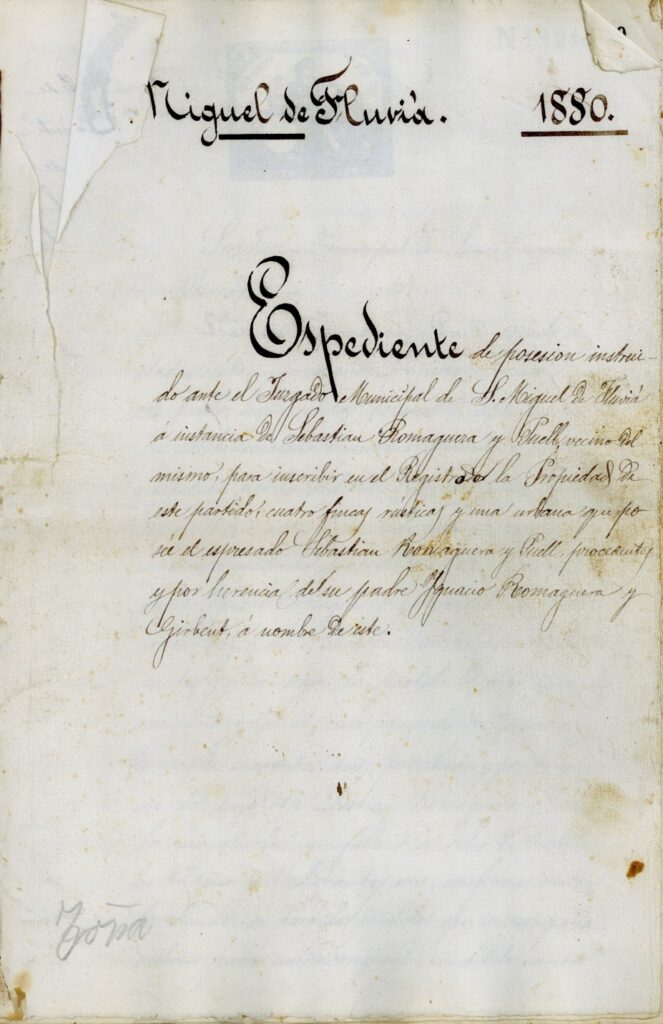 Miguel de Fluviá. 1880.
Espediente de posesion instrui-
do ante el Juzgado Municipal de S. Miguel de Fluviá
á instancia de Sebastian Romaguera y Puell, vecino del
mismo, para inscribir en el Registro de la Propiedad de
este partido, cuatro fincas rústicas y una urbana que po
seé el espresado Sebastian Romaguera y Puell, procedentes
y por herencia, de su padre Ygnacio Romaguera y
Girbent, á nombre de este.